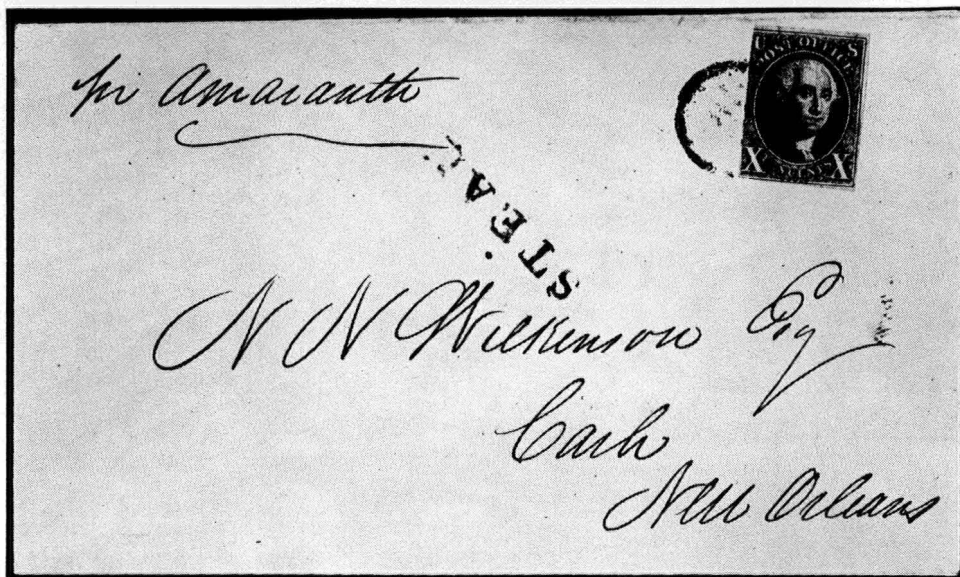 pr Amaranth
POST OFFICE
U S
X X
STEA
N N Wilkinson Esq
Cash
New Orleans